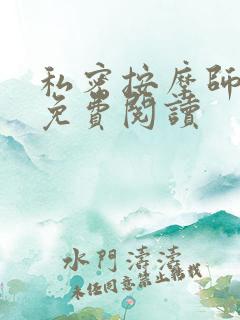 私密按摩師
免費閱讀
水門濤濤
未经同意禁止转载